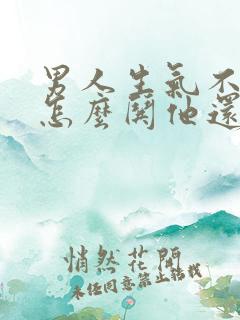 男人生氣不
怎麼鬨他還
悄然花開
未經同意禁止轉載